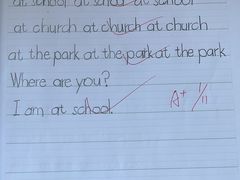 at school at school at school
at church at church at church
at the park at the park at the park
Where are you?
I am at school.
A+ 1/11